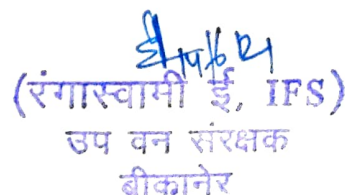 (रंगास्वामी ई, IFS)
उप वन संरक्षक
बीकानेर